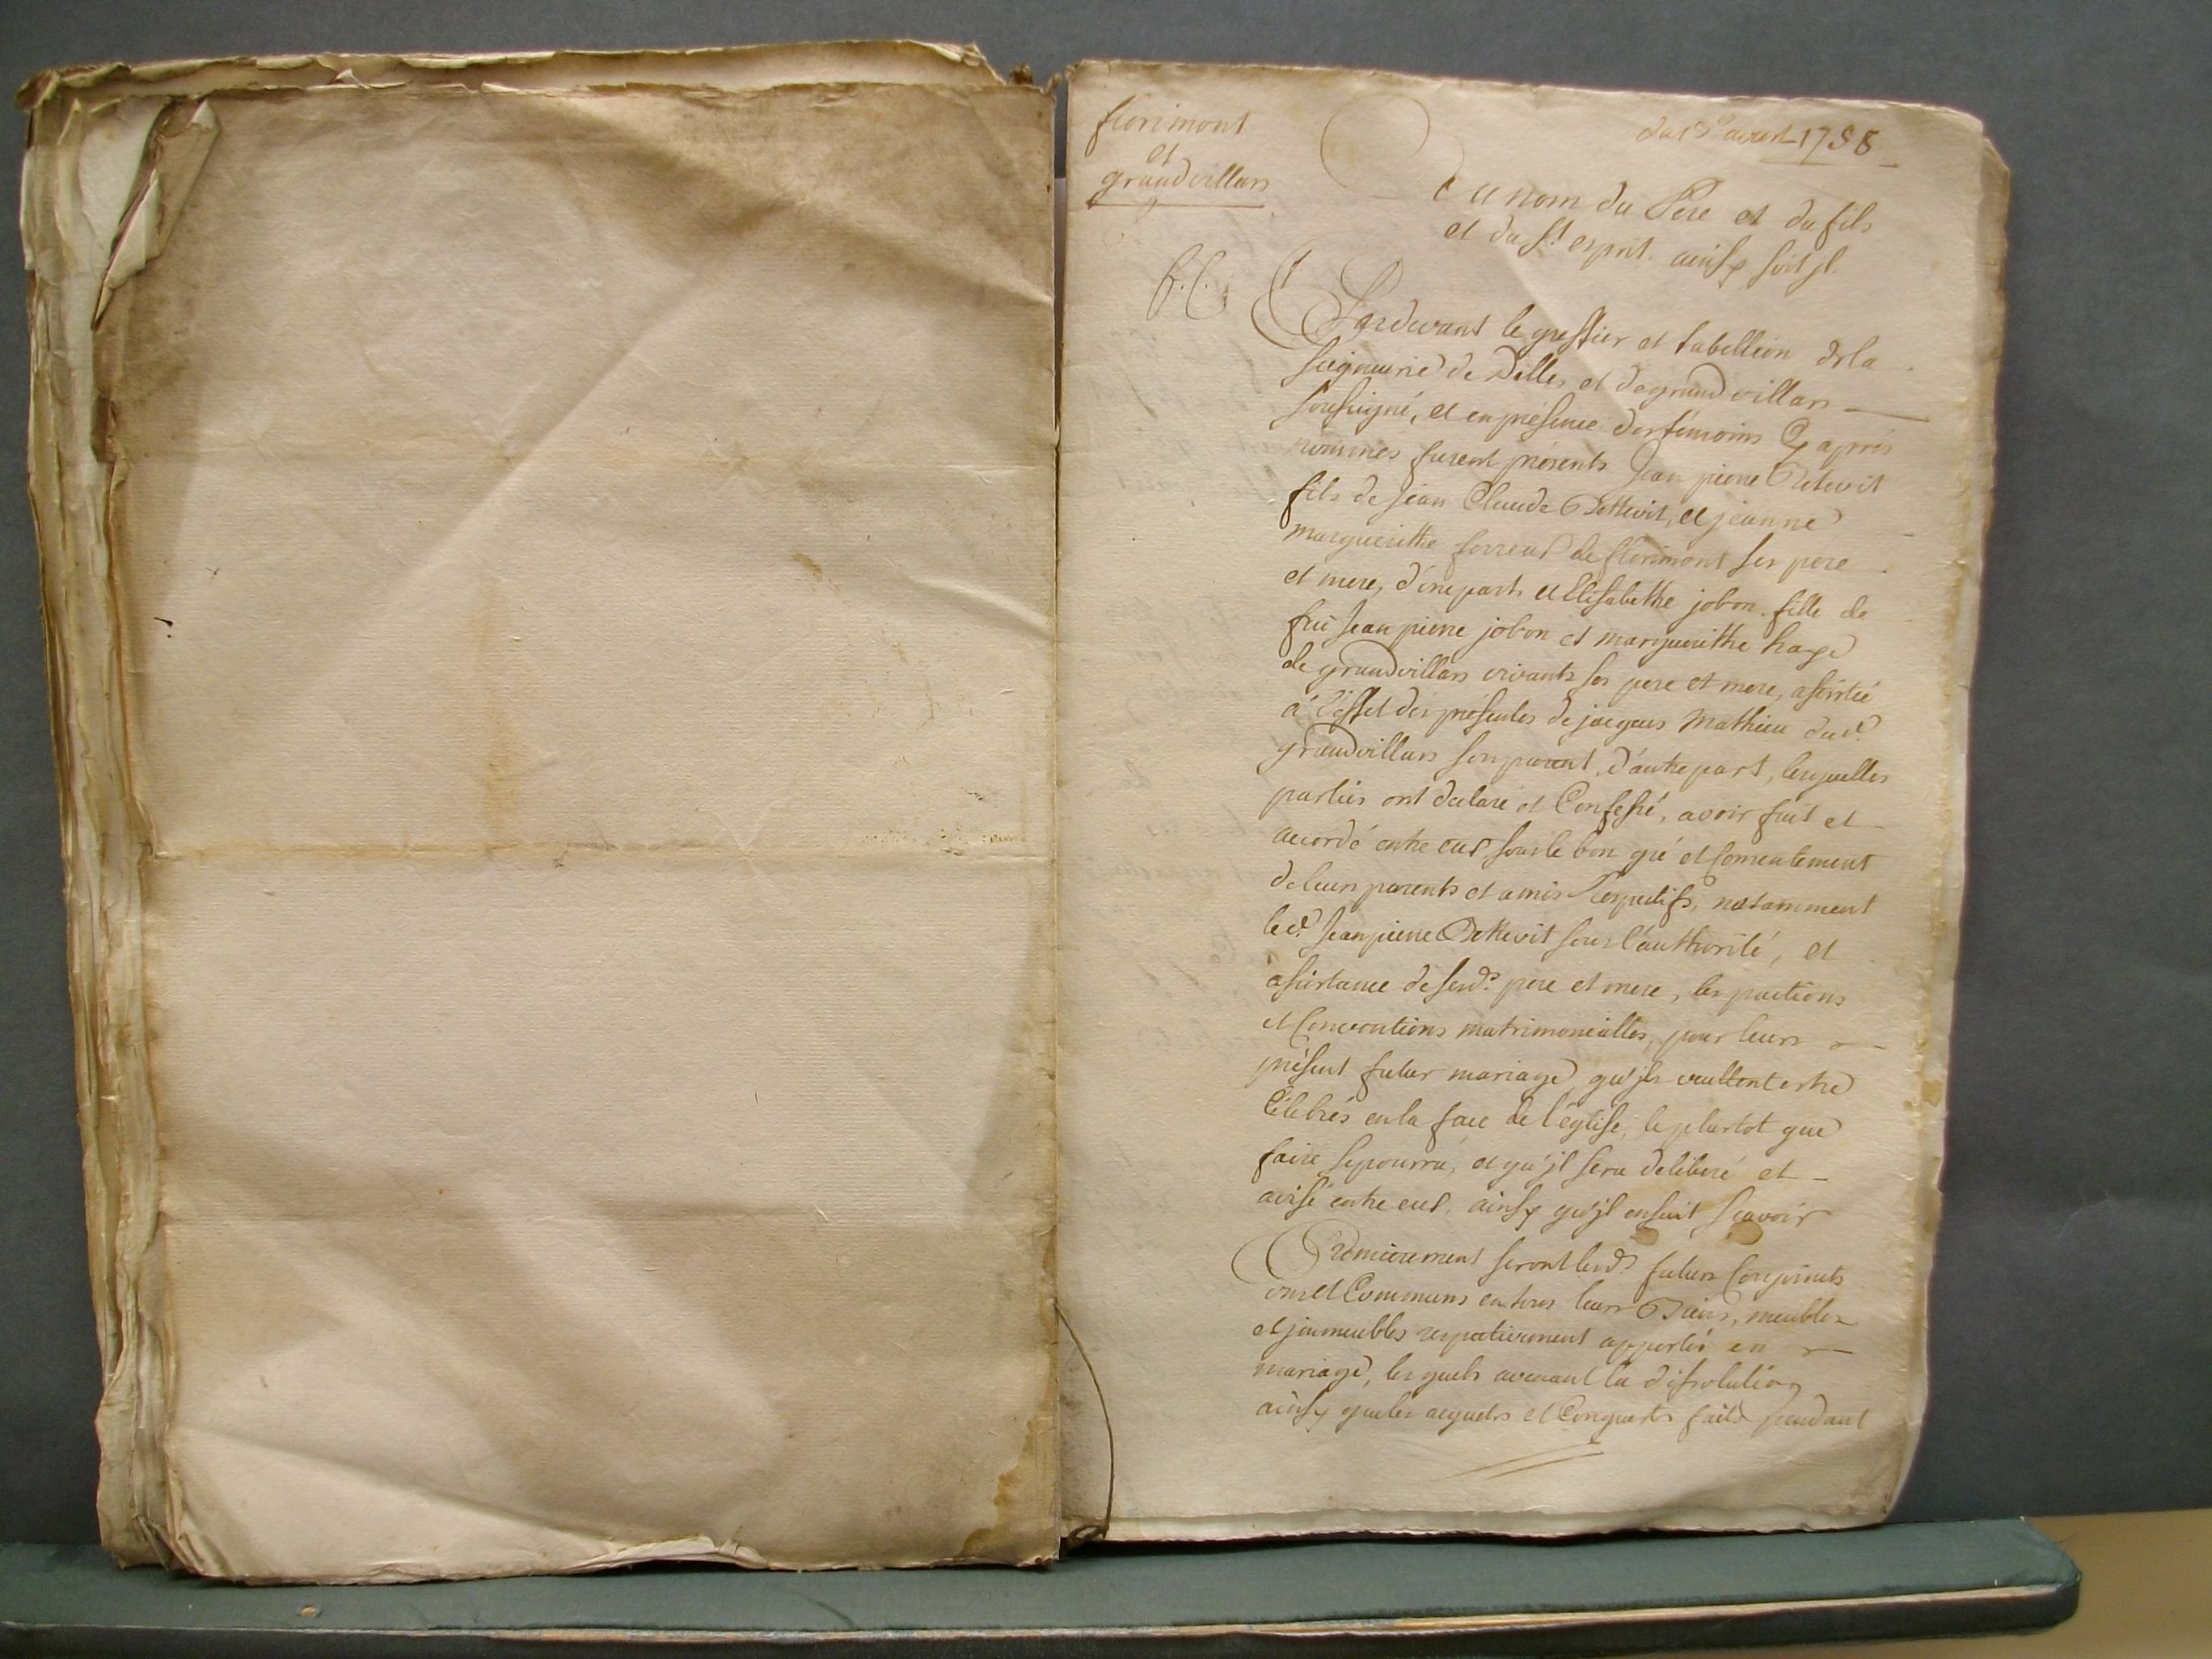 florimont
et
grandvillars
avril 1758
Au nom du Pere et du fils
et du St esprit. ainsy soit jl.
Pardevant le greffier et tabellion de la
seigneurie de Delle, et de grandvillars
soussigné, et en présence des témoins Cy apres
nommés furent présents Jean pierre Bettevit
fils de jean Claude Bettevit, et jeanne
marguerithe de florimont ses pere
et mere, d'une part, et Elisabethe jobon fille de
feü Jean pierre jobon et marguerithe
de grandvillars vivants ses pere et mere, assistée
à l'effet des présentes de jacques Mathieu dud.
grandvillars son parent, d'autre part, lesquelles
parties ont declaré et Confessé, avoir fait et
accordé entre eux sous le bon gré et Consentement
de leurs parents et amis respectifs, notamment
led. Jean pierre Bettevit sous l'authorité, et
assistance de sesd. pere et mere, les pactions
et Conventions matrimonialles, pour leurs
présent futur mariage, qu'jls veullent estre
Célebrés en la face de l'église, le plustot que
faire se pourra, et qu'jl sera deliberé et
avisé entre eux, ainsy qu'jl ensuit sçavoir
Premierement seront lesd. futurs Conjoints
uns et Communs en tous leurs Biens, meubles
et jmmeubles respectivement apportés en
mariage, lesquels avenant la dissolution
ainsy que les acquets et Conquests faits pendant